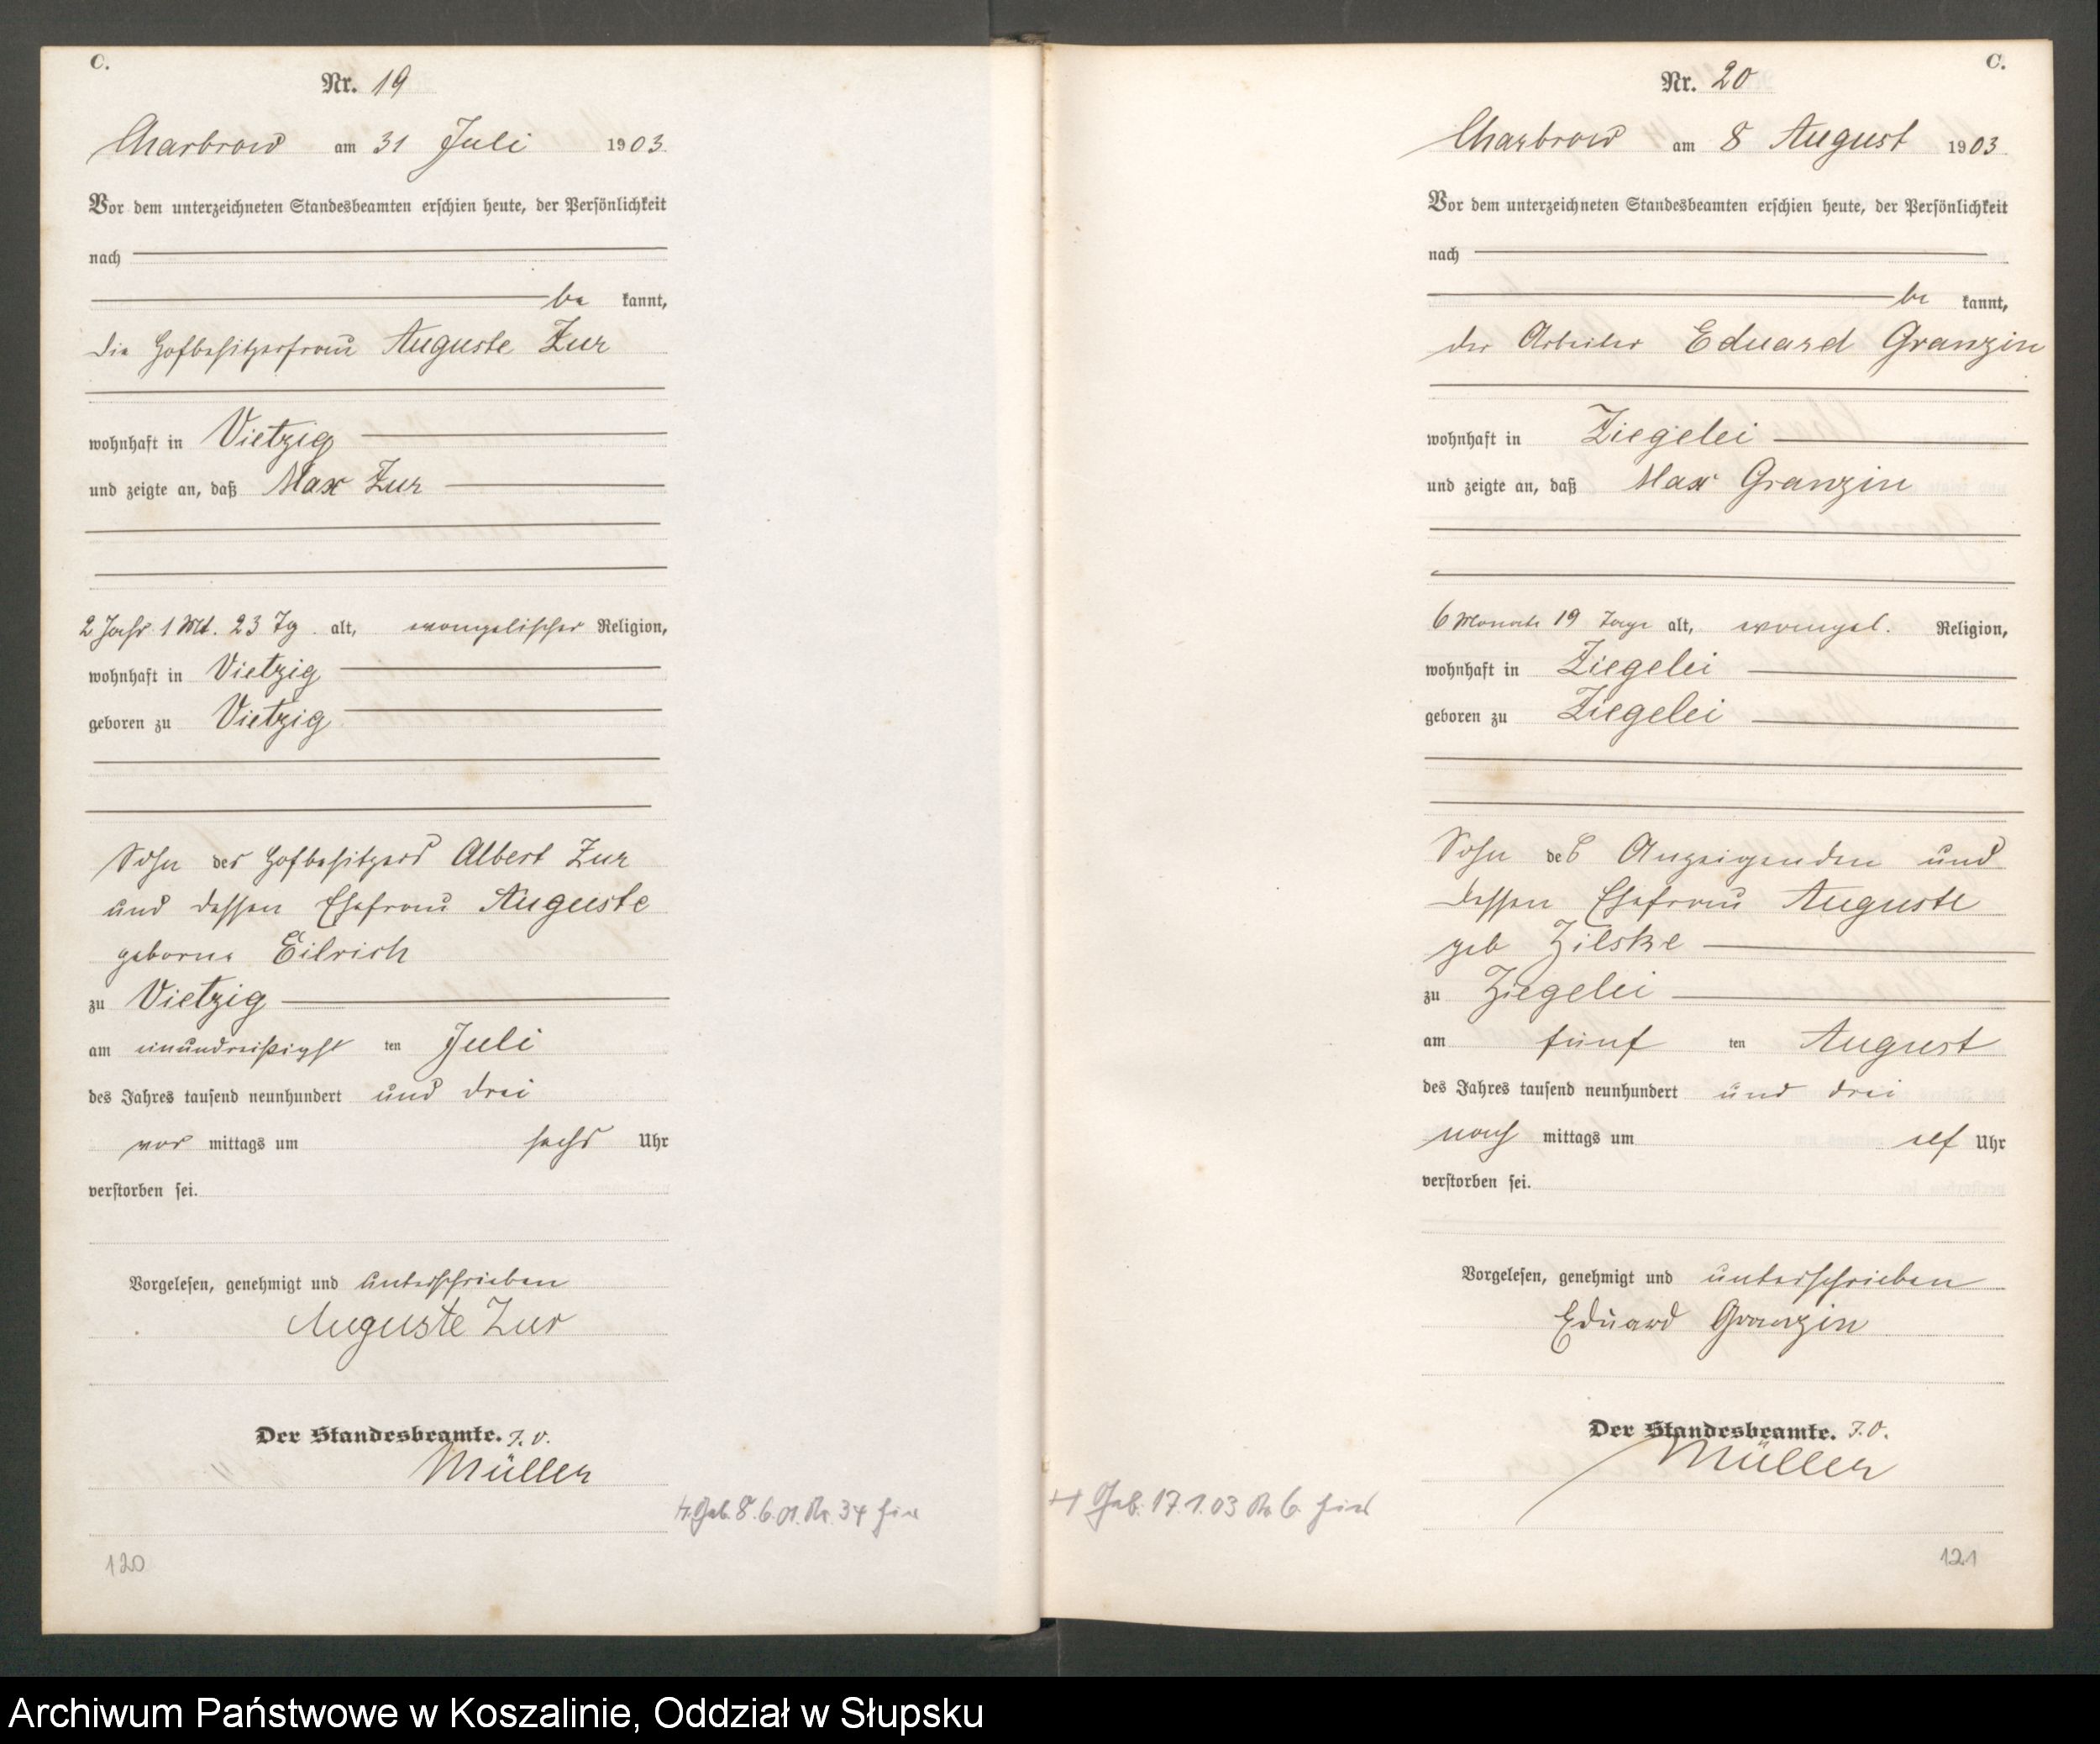 C.
Nr. 19
Charbrow am 31 Juli 1903.
Vor dem unterzeichneten Standesbeamten erschien heute, der Persönlichkeit
nach
be kannt,
die Hofbesitzerfrau Auguste Zur
wohnhaft in Vietzig
und zeigte an, daß Max Zur
2 Jahr 1 Mt. 23 Tg. alt, evangelischer Religion,
wohnhaft in Vietzig
geboren zu Vietzig
Sohn des Hofbesitzers Albert Zur
und dessen Ehefrau Auguste
geborne Eilrich
zu Vietzig
am einunddreißigst ten Juli
des Jahres tausend neunhundert und drei
vor mittags um sechs Uhr
verstorben sei.
Vorgelesen, genehmigt und unterschrieben
Auguste Zur
Der Standesbeamte. I. V.
Müller
Geb. 8.6.01. Nr. 34 hier
120
C.
Nr. 20
Charbrow am 8 August 1903
Vor dem unterzeichneten Standesbeamten erschien heute, der Persönlichkeit
nach
be kannt,
der Arbeiter Eduard Granzin
wohnhaft in Ziegelei
und zeigte an, daß Max Granzin
6 Monate 19 Tage alt, evangel. Religion,
wohnhaft in Ziegelei
geboren zu Ziegelei
Sohn des Anzeigenden und
dessen Ehefrau Auguste
geb Zilske
zu Ziegelei
am fünf ten August
des Jahres tausend neunhundert und drei
nach mittags um elf Uhr
verstorben sei.
Vorgelesen, genehmigt und unterschrieben
Eduard Granzin
Der Standesbeamte. I. V.
Müller
Geb. 17.1.03 Nr 6. hier
121
Archiwum Państwowe w Koszalinie, Oddział w Słupsku